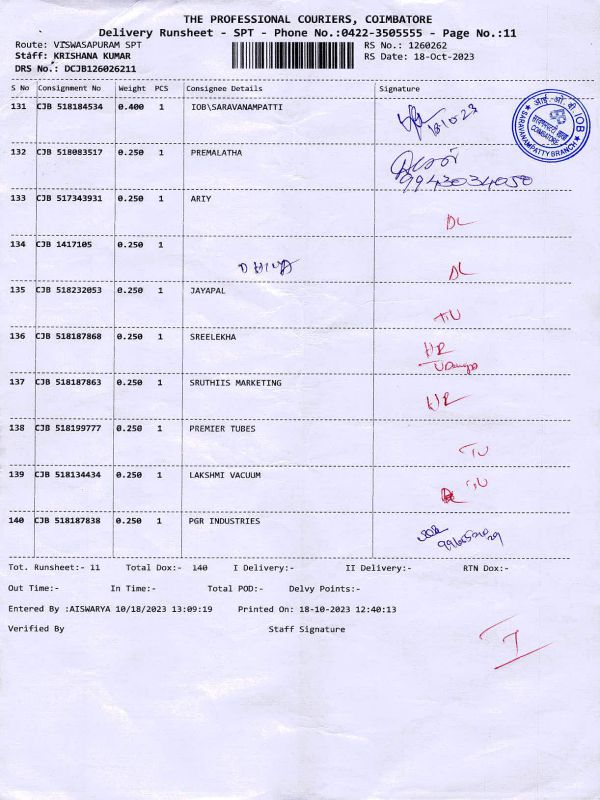 THE PROFESSIONAL COURIERS, COIMBATORE
Delivery Runsheet - SPT - Phone No.:0422-3505555 - Page No.:11
Route: VISWASAPURAM SPT RS No.: 1260262
Staff: KRISHANA KUMAR RS Date: 18-Oct-2023
DRS No.: DCJB126026211
S No Consignment No Weight PCS Consignee Details Signature
131 CJB 518184534 0.400 1 IOB\SARAVANAMPATTI
18-10-23
आई ओ बी IOB
COIMBATORE
SARAVANAMPATTY BRANCH
132 CJB 518083517 0.250 1 PREMALATHA
9943034050
133 CJB 517343931 0.250 1 ARIY
DL
134 CJB 1417105 0.250 1
DHIVYA DL
135 CJB 518232053 0.250 1 JAYAPAL
TU
136 CJB 518187868 0.250 1 SREELEKHA
HR
137 CJB 518187863 0.250 1 SRUTHIIS MARKETING
HR
138 CJB 518199777 0.250 1 PREMIER TUBES
TU
139 CJB 518134434 0.250 1 LAKSHMI VACUUM
TU
140 CJB 518187838 0.250 1 PGR INDUSTRIES
Tot. Runsheet:- 11 Total Dox:- 140 I Delivery:- II Delivery:- RTN Dox:-
Out Time:- In Time:- Total POD:- Delvy Points:-
Entered By :AISWARYA 10/18/2023 13:09:19 Printed On: 18-10-2023 12:40:13
Verified By Staff Signature